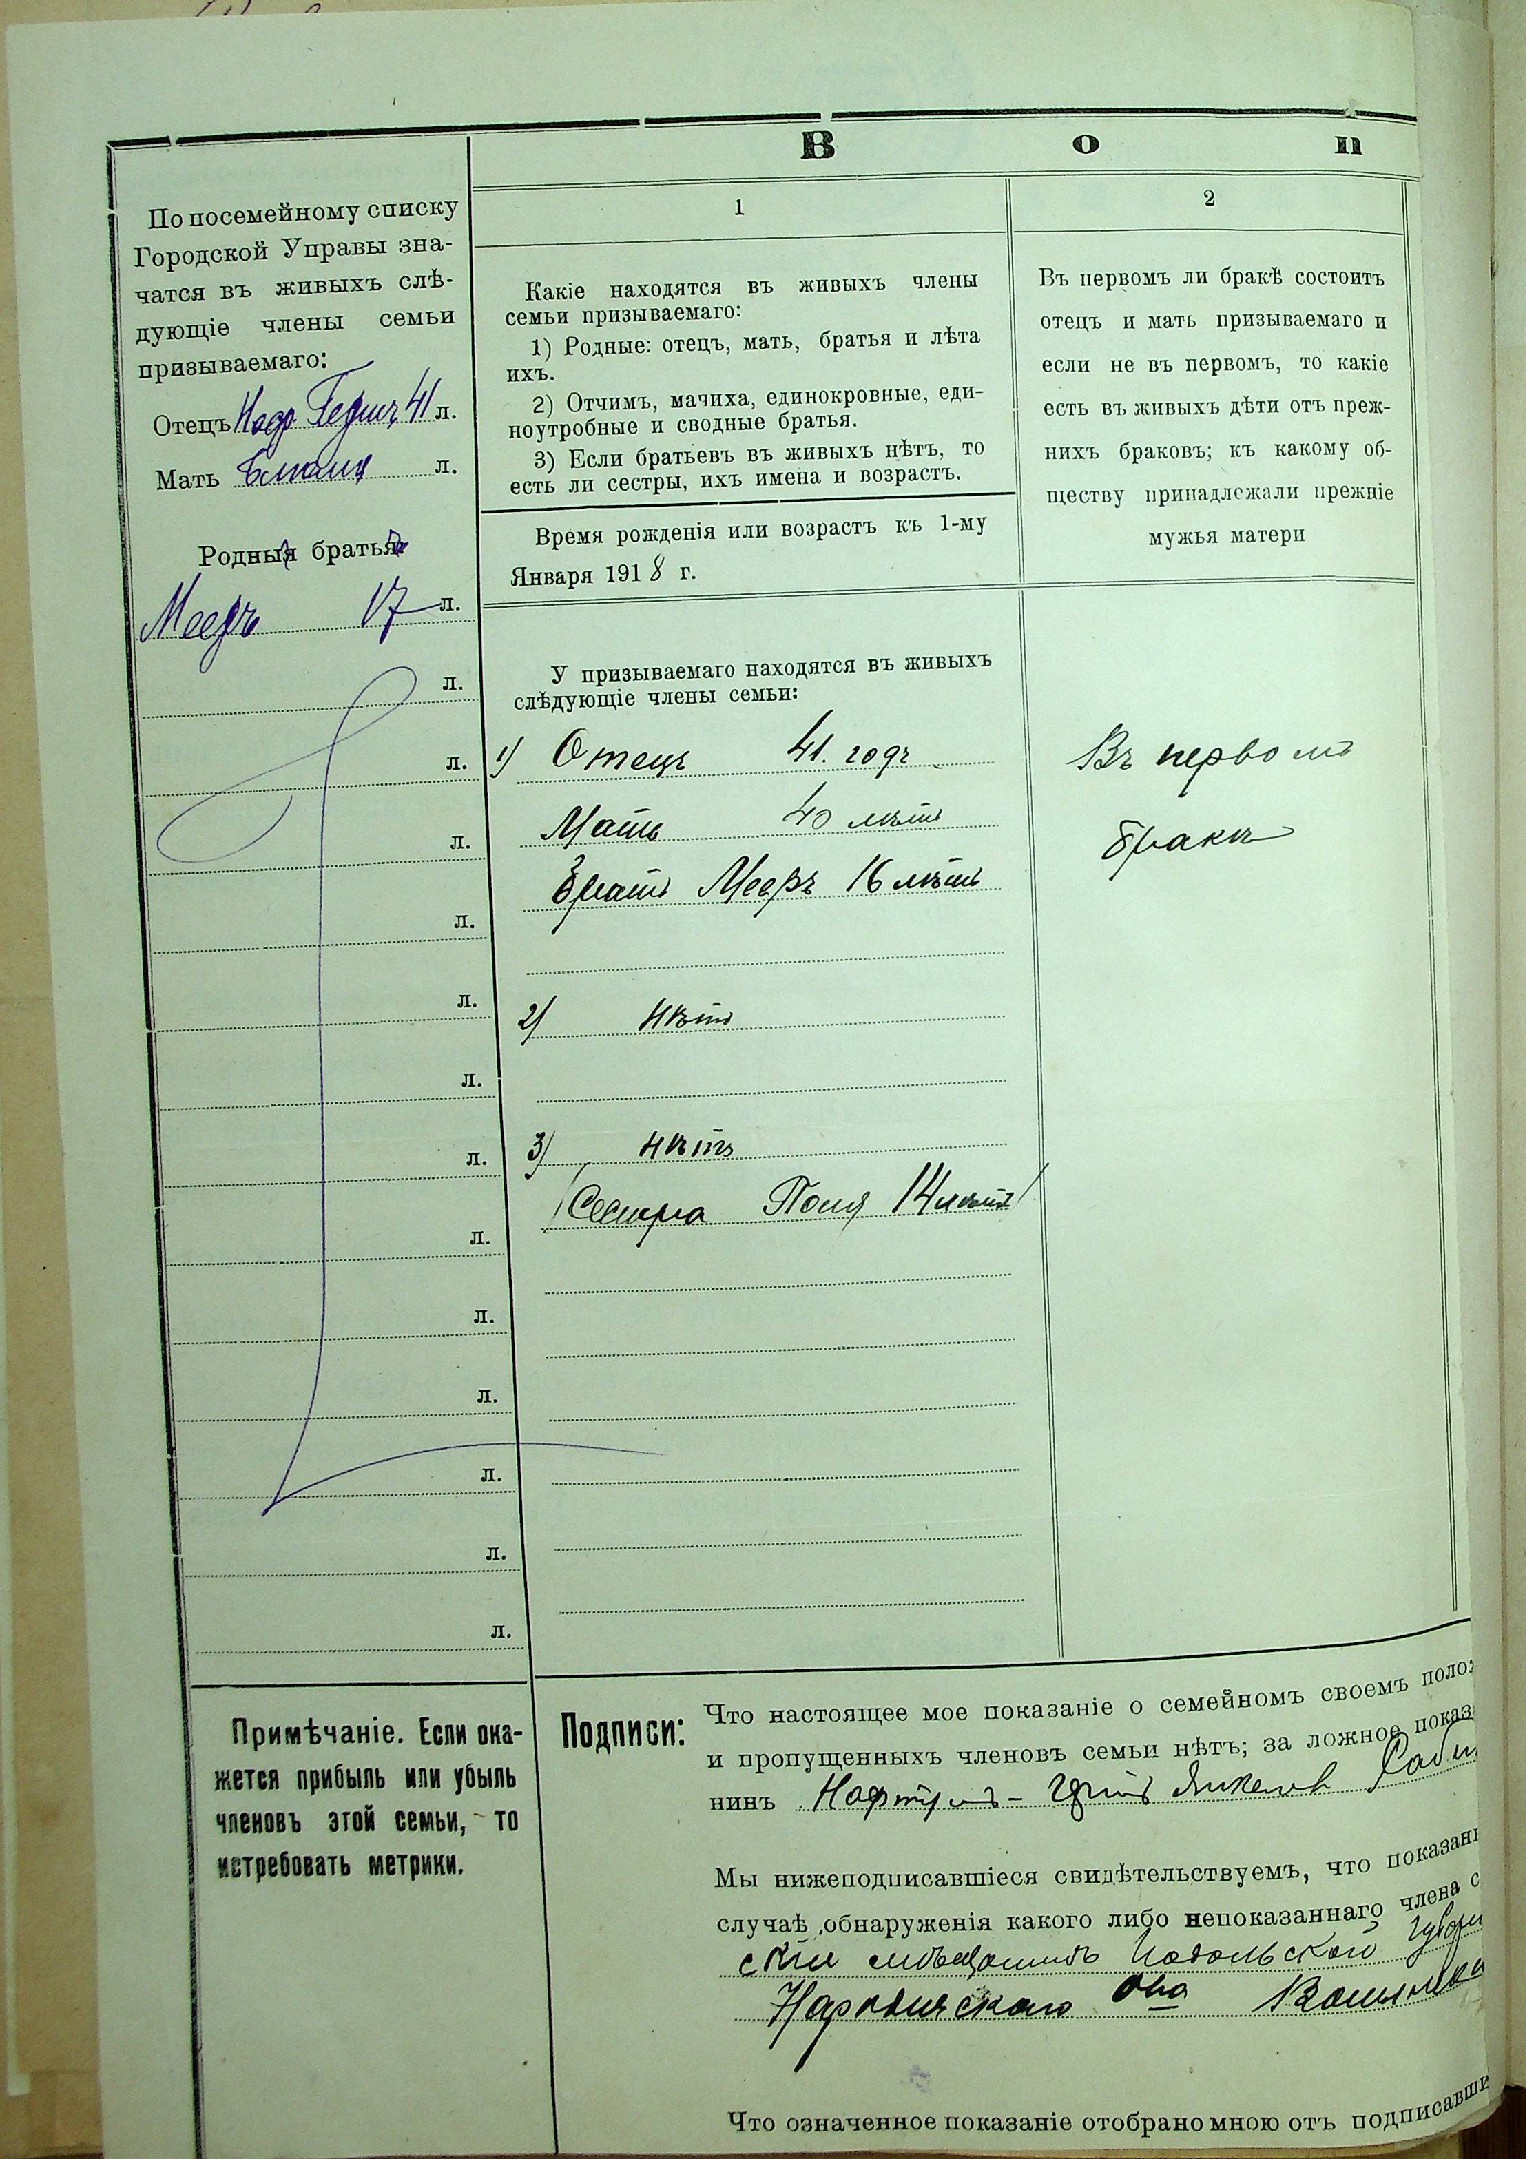 В о п
По посемейному списку
Городской Управы зна-
чатся въ живыхъ слѣ-
дующіе члены семьи
призываемаго:
Отецъ 41 л.
Мать л.
Родныя братья
Мееръ 17 л.
л.
л.
л.
л.
л.
л.
л.
л.
л.
л.
л.
л.
л.
Примѣчаніе. Если ока-
жется прибыль или убыль
членовъ этой семьи, то
истребовать метрики.
1
Какіе находятся въ живыхъ члены
семьи призываемаго:
1) Родные: отецъ, мать, братья и лѣта
ихъ.
2) Отчимъ, мачиха, единокровные, еди-
ноутробные и сводные братья.
3) Если братьевъ въ живыхъ нѣтъ, то
есть ли сестры, ихъ имена и возрастъ.
Время рожденія или возрастъ къ 1-му
Января 1918 г.
У призываемаго находятся въ живыхъ
слѣдующіе члены семьи:
1) Отецъ 41. годъ
Мать 40 лѣтъ
Братъ Мееръ 16 лѣтъ
2) нѣтъ
3) нѣтъ
(Сестра Поля 14 лѣтъ)
2
Въ первомъ ли бракѣ состоитъ
отецъ и мать призываемаго и
если не въ первомъ, то какіе
есть въ живыхъ дѣти отъ преж-
нихъ браковъ; къ какому об-
ществу принадлежали прежніе
мужья матери
Въ первомъ
бракѣ
Подписи:
Что настоящее мое показаніе о семейномъ своемъ полож
и пропущенныхъ членовъ семьи нѣтъ; за ложное показа
нинъ Нафтулъ-
Мы нижеподписавшіеся свидѣтельствуемъ, что показані
случаѣ обнаруженія какого либо непоказаннаго члена с
мѣщанинъ Подольской губер
о-ва
Что означенное показаніе отобрано мною отъ подписавши